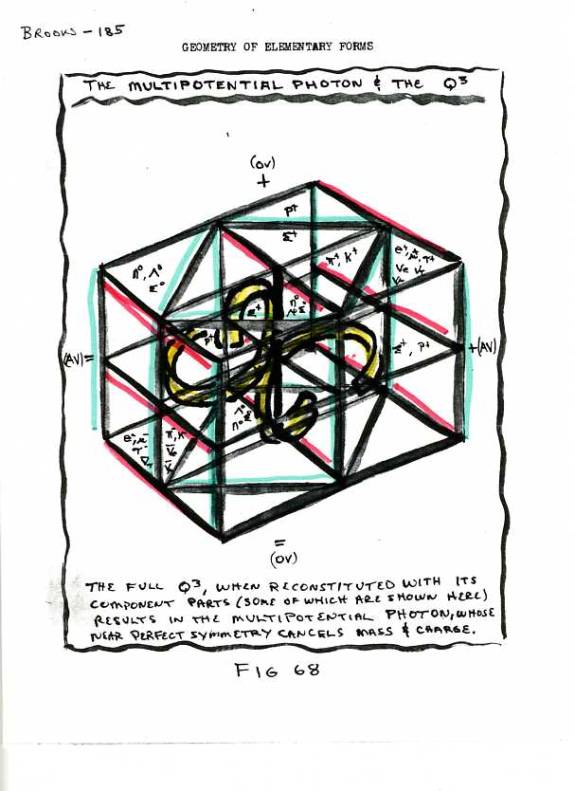 BROOKS - 185
GEOMETRY OF ELEMENTARY FORMS
THE MULTIPOTENTIAL PHOTON & THE Q³
(OV)
+
P+
Σ+
π+, K+
n⁰, Λ⁰
Σ⁰
Σ+
P+
Σ+, P+
(AV)=
+(AV)
=
(OV)
THE FULL Q³, WHEN RECONSTITUTED WITH ITS
COMPONENT PARTS (SOME OF WHICH ARE SHOWN HERE)
RESULTS IN THE MULTIPOTENTIAL PHOTON, WHOSE
NEAR PERFECT SYMMETRY CANCELS MASS & CHARGE.
FIG 68